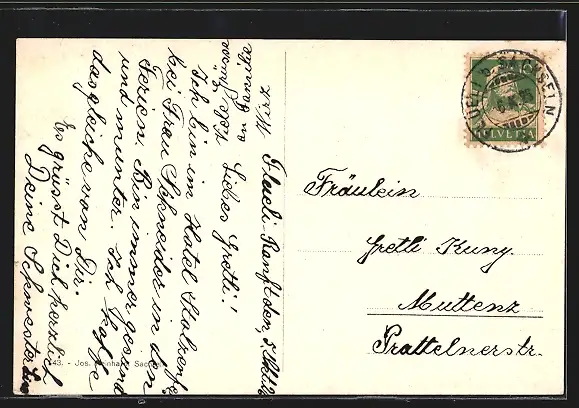 Flüeli-Ranft den, 5. Oktbr.
Liebes Gretli!
Ich bin im Hotel Stolzenfels
bei Frau Schneider in den
Ferien. Bin immer gesund
und munter. Ich hoffe
dasgleiche von Dir.
Es grüsst Dich herzlich
Deine Schwester
Viele Grüsse
an Familie
Fräulein
Gretli Kuny.
Muttenz
Prattelnerstr.
HELVETIA
43. - Jos. Reinhard, Sachseln